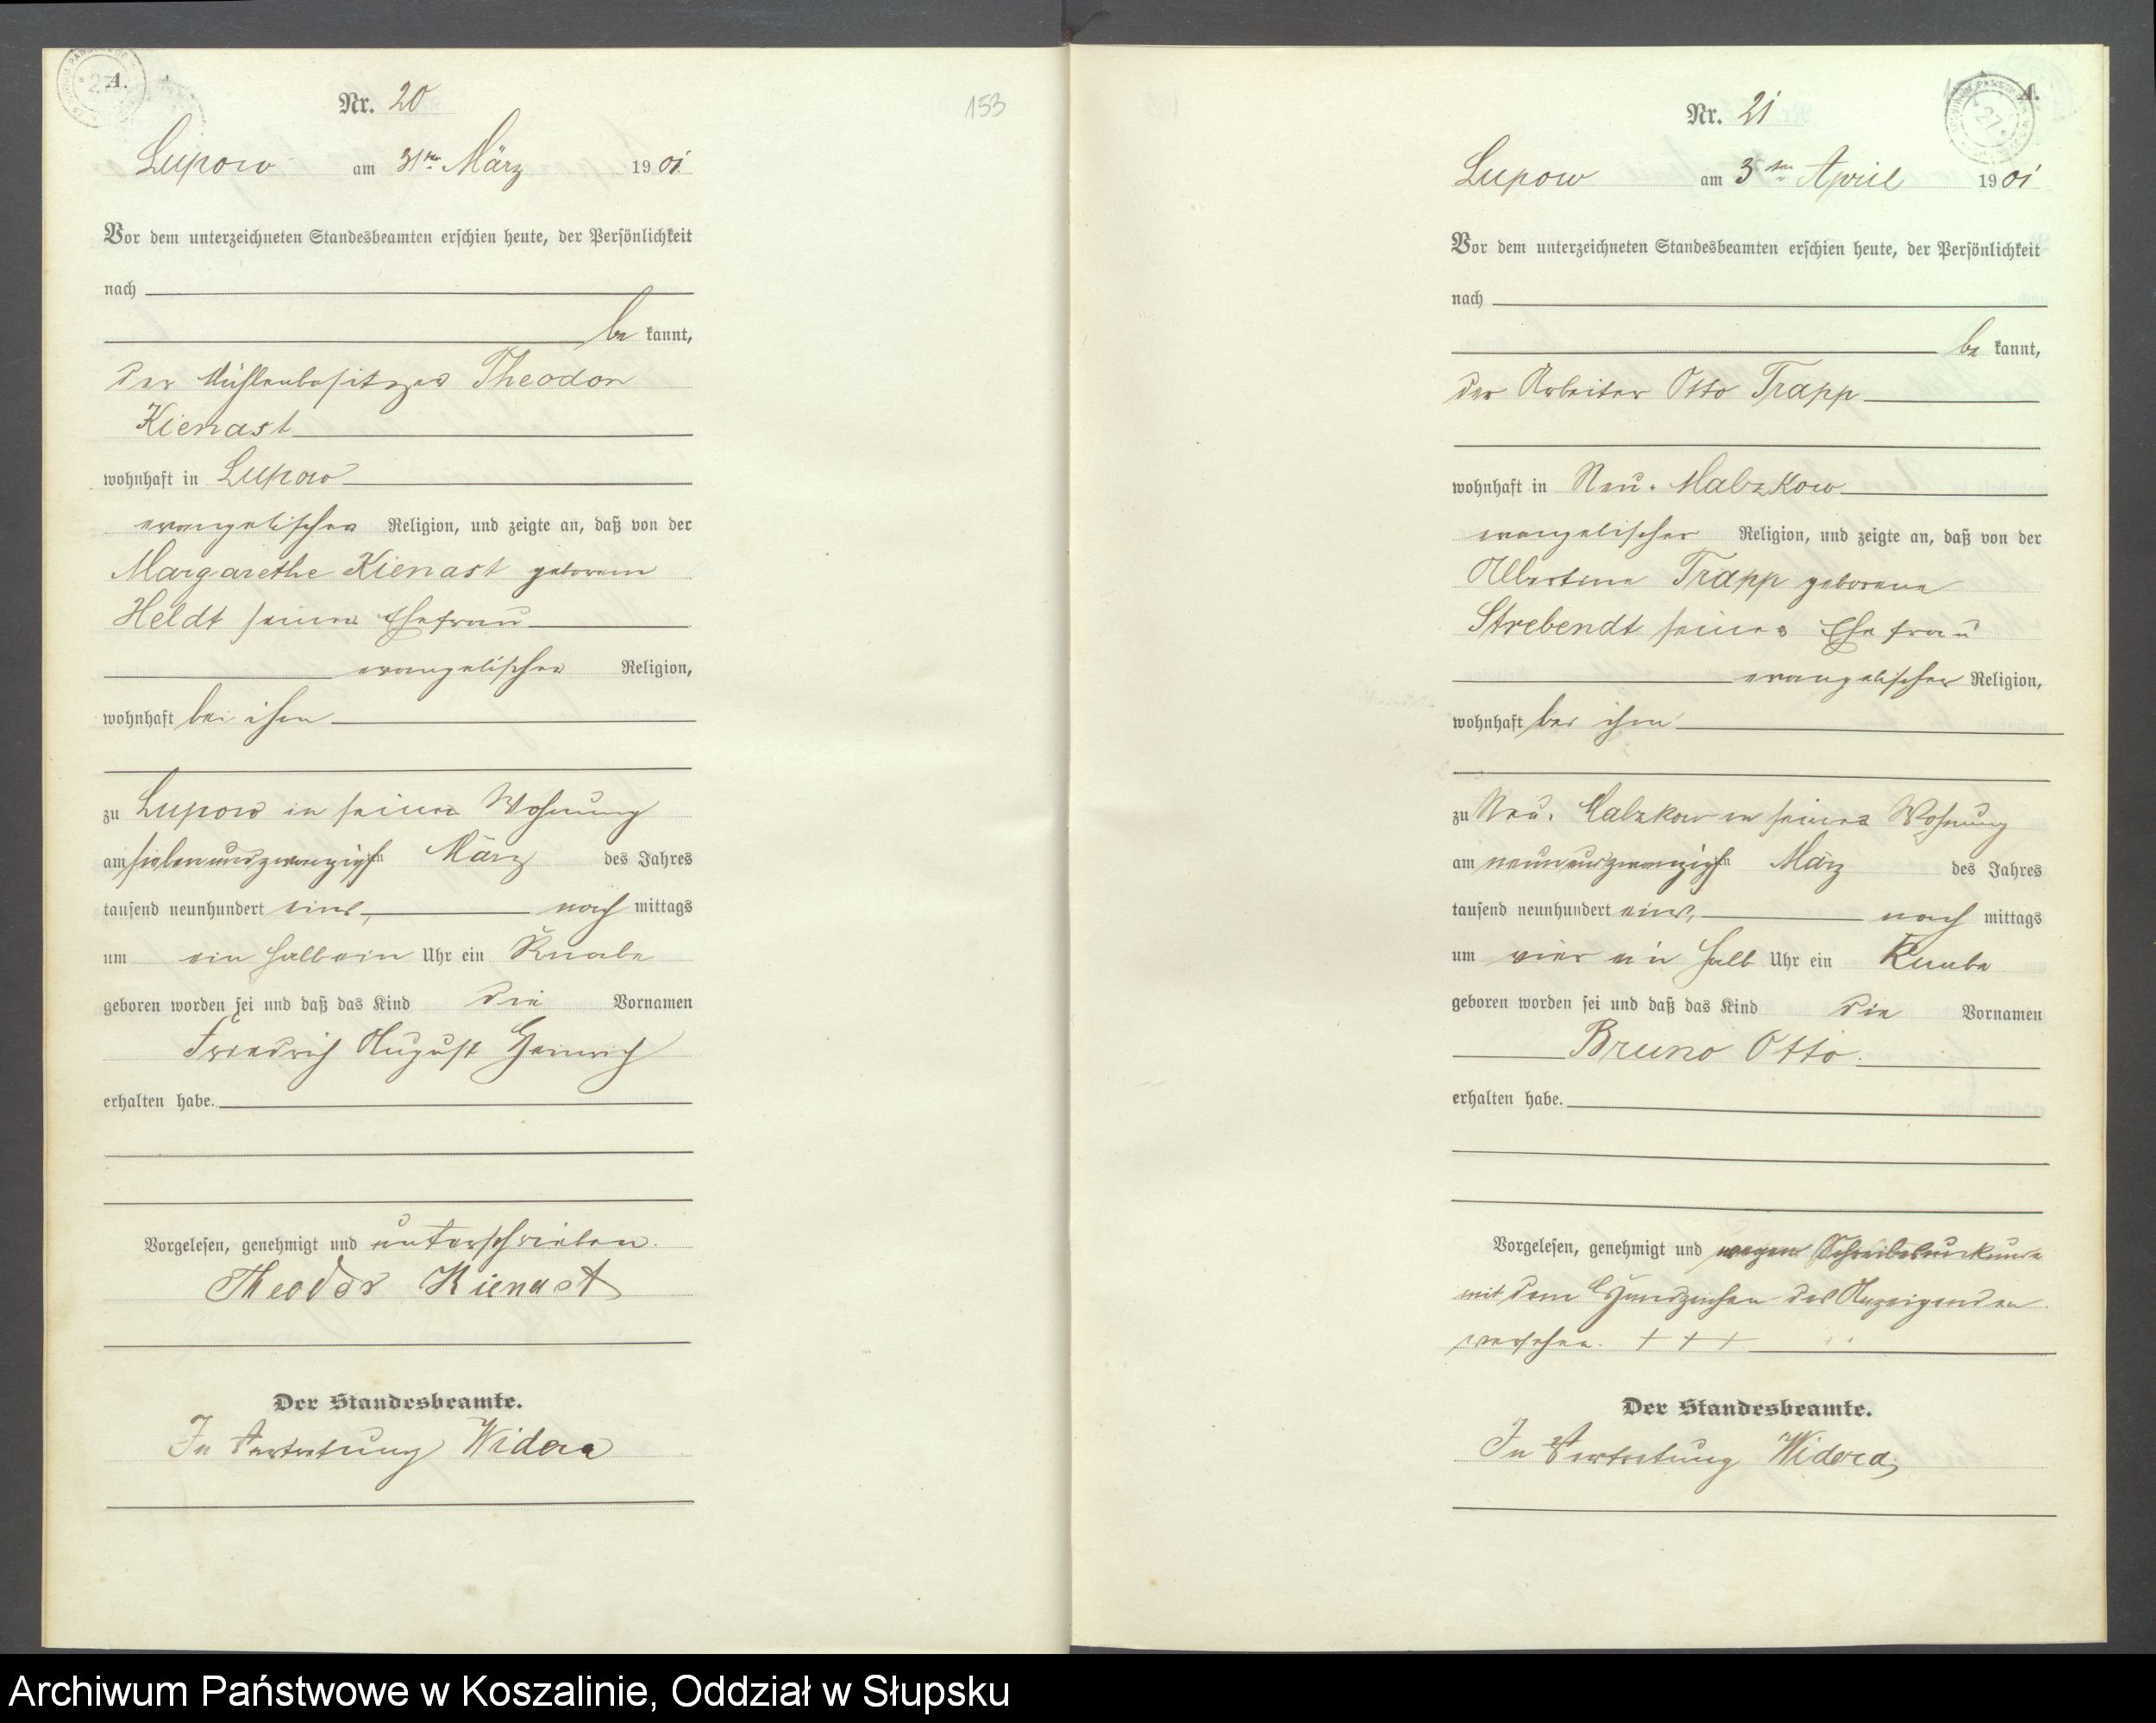 A.
Nr. 20
Lupow am 31ten März 1901
Vor dem unterzeichneten Standesbeamten erschien heute, der Persönlichkeit
nach
be kannt,
der Mühlenbesitzer Theodor
Kienast
wohnhaft in Lupow
evangelischer Religion, und zeigte an, daß von der
Margarethe Kienast geborene
Heldt seiner Ehefrau
evangelischer Religion,
wohnhaft bei ihm
zu Lupow in seiner Wohnung
am siebenundzwanzigsten März des Jahres
tausend neunhundert eins, nach mittags
um ein halb ein Uhr ein Knabe
geboren worden sei und daß das Kind die Vornamen
Friedrich August Heinrich
erhalten habe.
Vorgelesen, genehmigt und unterschrieben.
Theodor Kienast
Der Standesbeamte.
In Vertretung Widera
153
A.
27
Nr. 21
Lupow am 3ten April 1901
Vor dem unterzeichneten Standesbeamten erschien heute, der Persönlichkeit
nach
be kannt,
der Arbeiter Otto Trapp
wohnhaft in Neu. Malzkow
evangelischer Religion, und zeigte an, daß von der
Albertine Trapp geborene
Strebendt seiner Ehefrau
evangelischer Religion,
wohnhaft bei ihm
zu Neu. Malzkow in seiner Wohnung
am neunundzwanzigsten März des Jahres
tausend neunhundert eins, nach mittags
um vier ein halb Uhr ein Knabe
geboren worden sei und daß das Kind die Vornamen
Bruno Otto.
erhalten habe.
Vorgelesen, genehmigt und wegen Schreibensunkunde
mit dem Handzeichen des Anzeigenden
versehen. + + +
Der Standesbeamte.
In Vertretung Widera
Archiwum Państwowe w Koszalinie, Oddział w Słupsku